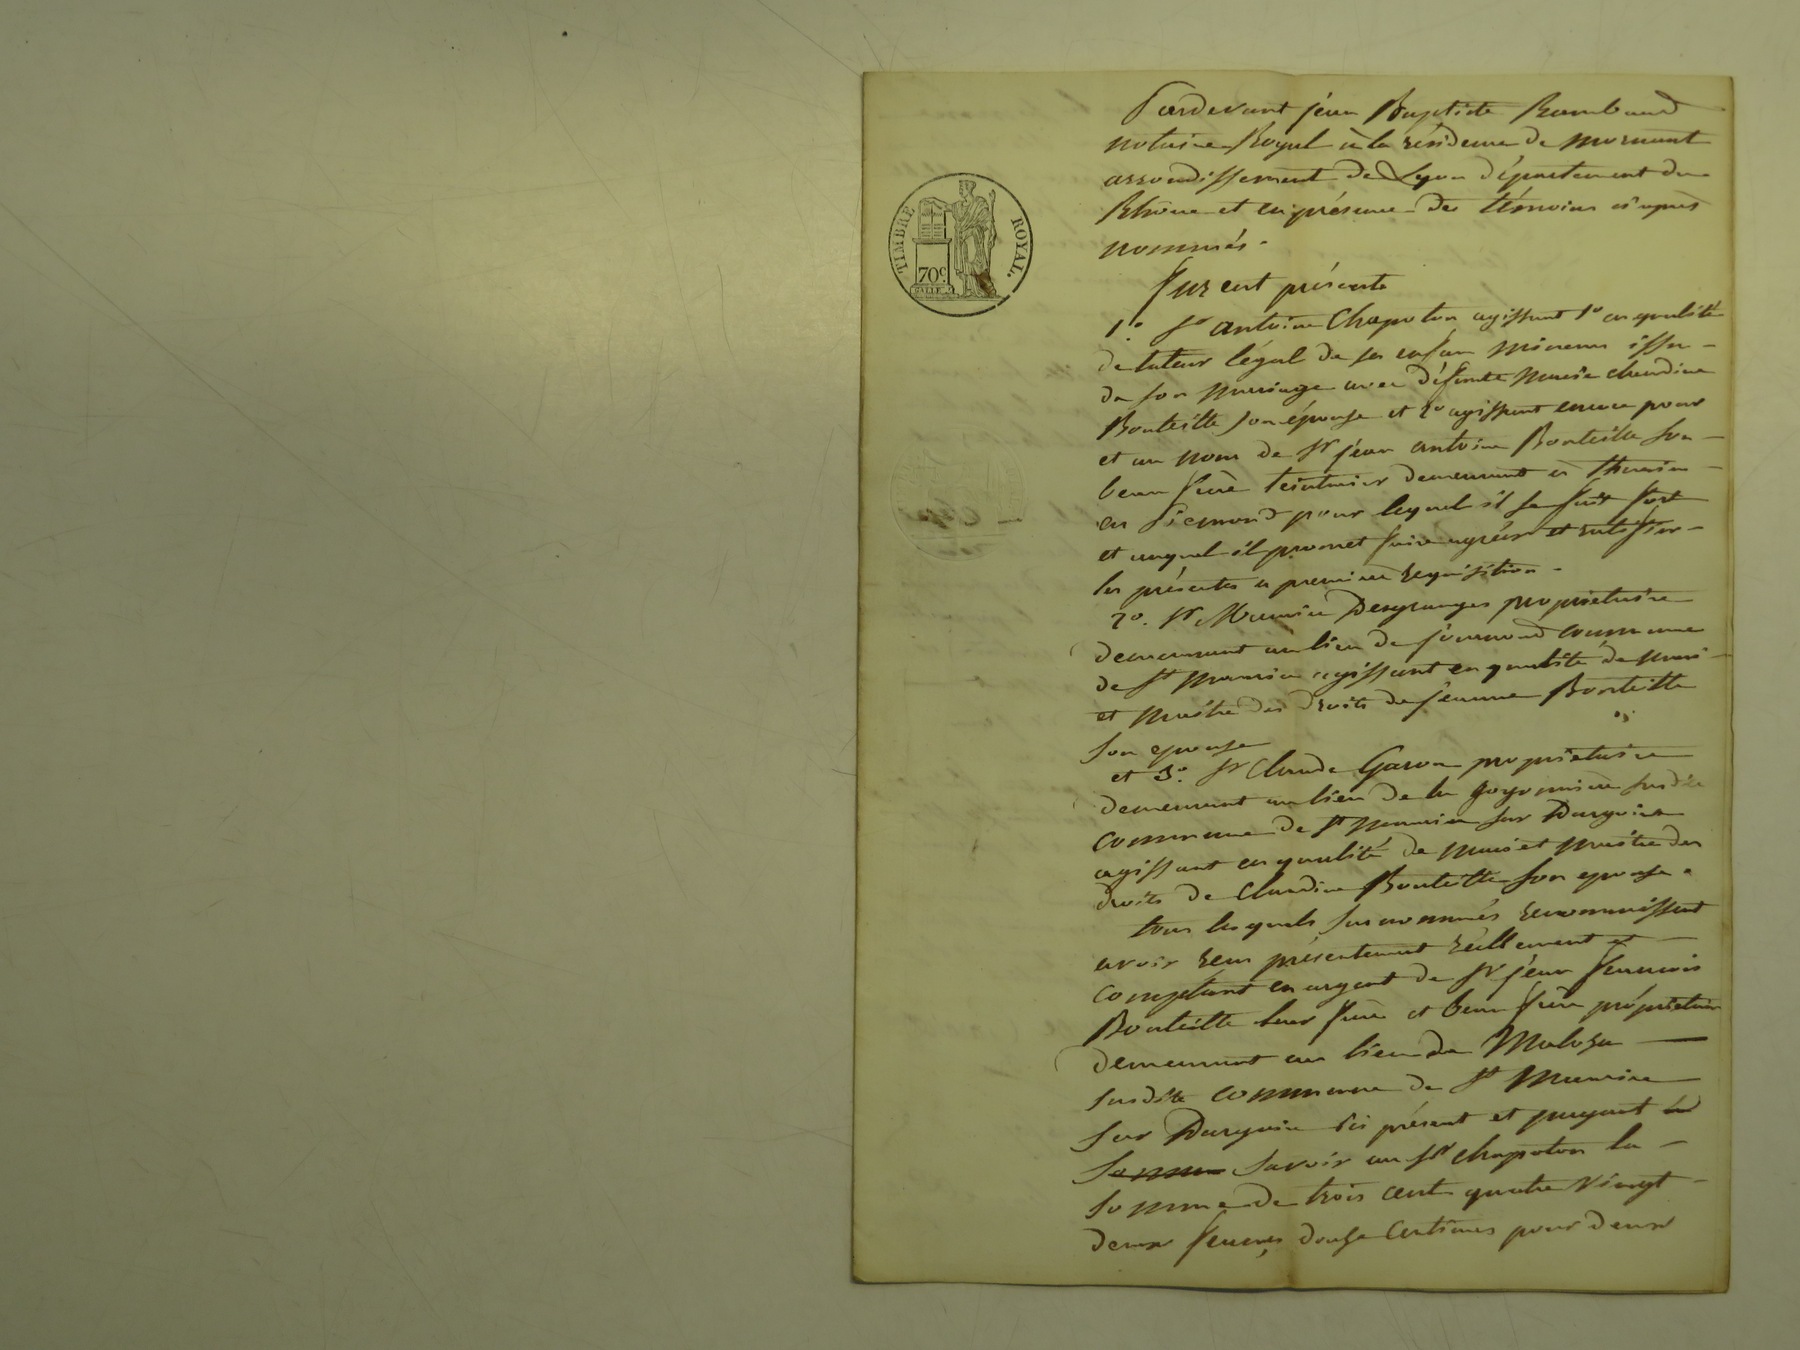 TIMBRE ROYAL.
70c.
Pardevant jéan Baptiste Rambaud
notaire Royal à la résidence de mornant
arrondissement de Lyon département du
Rhône et en présence des témoins ci après
nommés.
furent présents
1.° Sr antoine Chapoton agissant 1° en qualité
de tuteur légal de ses enfans mineurs issus
de son mariage avec défunte marie claudine
Bouteille son épouse et 2° agissant encore pour
et au nom de Sr jéan antoine Bouteille son
beau frère teinturier demeurant à thurin
en piemond pour lequel il se fait fort
et auquel il promet faire agréer et ratifier
les présentes a premiere requisition.
2°. Sr Maurice Desgranges proprietaire
demeurant au lieu de commune
de St maurice agissant en qualité de mari
et maitre des droits de jeanne Bouteille
son epouse
et 3.° Sr Claude Garon proprietaire
demeurant au lieu de la susdite
commune de St maurice sur Dargoire
agissant en qualité de mari et maitre des
droits de Claudine Bouteille son epouse.
tous lesquels susnommés reconnaissent
avoir reçu présentement réellement et
comptant en argent de Sr jéan francois
Bouteille leur frère et beau frère propriétaire
demeurant au lieu de
susdite commune de St Maurice
sur Dargoire ici présent et payant
savoir au Sr chapoton la
somme de trois cent quatre vingt
deux francs, douze centimes pour deux